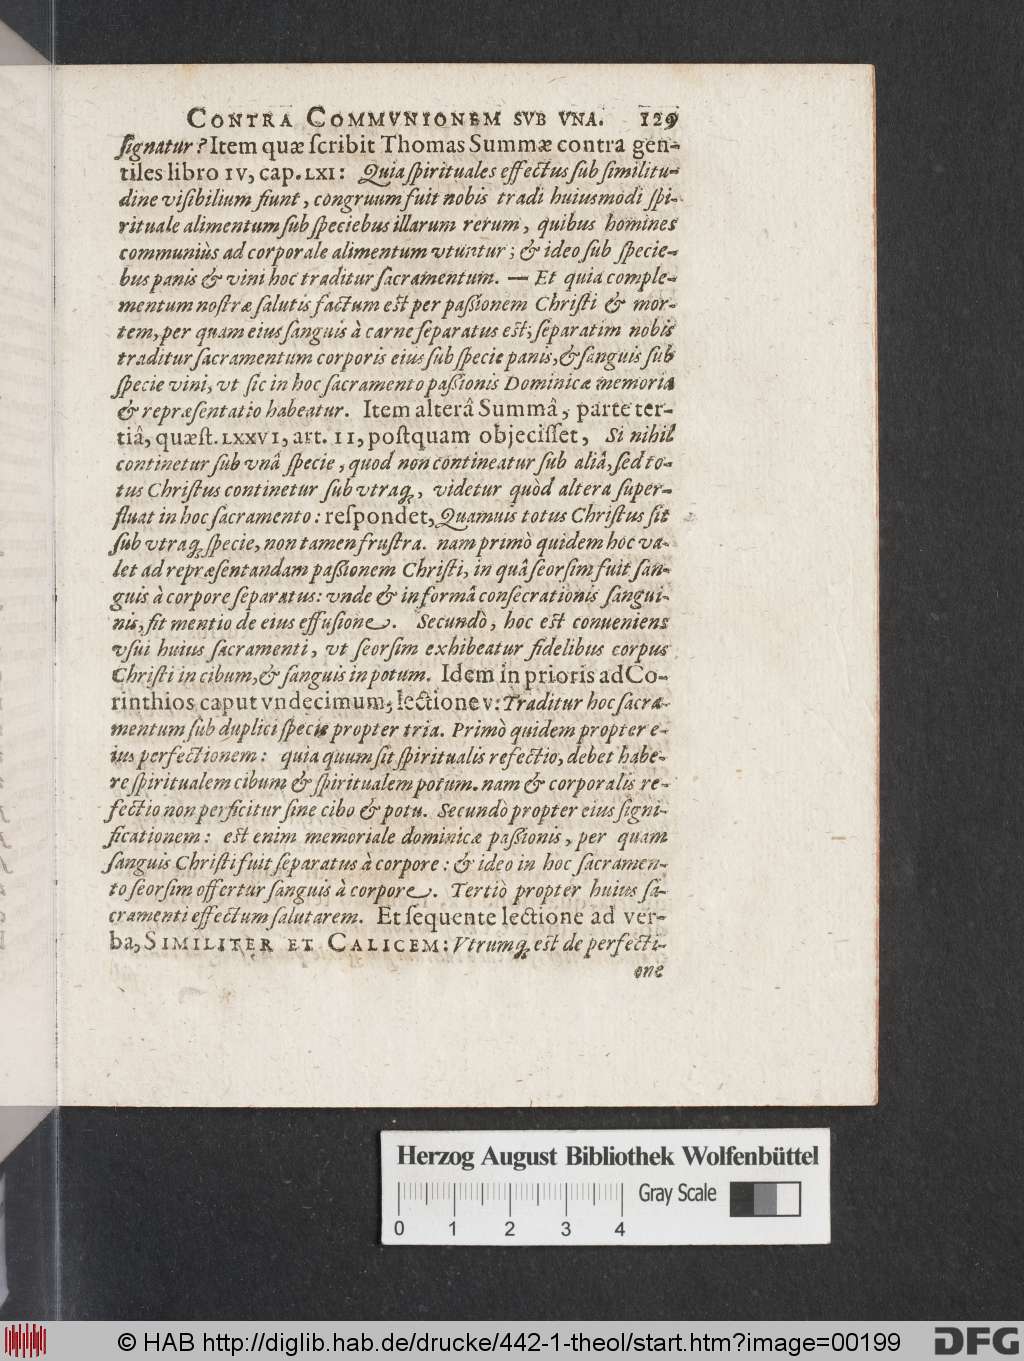 CONTRA COMMVNIONEM SVB VNA. 129
ſignatur? Item quæ ſcribit Thomas Summæ contra gen-
tiles libro IV, cap. LXI: Quia ſpirituales effectus ſub ſimilitu-
dine viſibilium fiunt, congruum fuit nobis tradi huiusmodi ſpi-
rituale alimentum ſub ſpeciebus illarum rerum, quibus homines
communiùs ad corporale alimentum vtuntur; & ideo ſub ſpecie-
bus panis & vini hoc traditur ſacramentum. — Et quia comple-
mentum noſtræ ſalutis factum eſt per paſſionem Chriſti & mor-
tem, per quam eius ſanguis à carne ſeparatus eſt; ſeparatim nobis
traditur ſacramentum corporis eius ſub ſpecie panis, & ſanguis ſub
ſpecie vini, vt ſic in hoc ſacramento paſſionis Dominicæ memoria
& repræſentatio habeatur. Item alterâ Summâ, parte ter-
tiâ, quæſt. LXXVI, art. II, poſtquam objeciſſet, Si nihil
continetur ſub vnâ ſpecie, quod non contineatur ſub aliâ, ſed to-
tus Chriſtus continetur ſub vtraq;, videtur quòd altera ſuper-
fluat in hoc ſacramento: reſpondet, Quamuis totus Chriſtus ſit
ſub vtraq; ſpecie, non tamen fruſtra. nam primò quidem hoc va-
let ad repræſentandam paſſionem Chriſti, in quâ ſeorſim fuit ſan-
guis à corpore ſeparatus: vnde & in formâ conſecrationis ſangui-
nis, fit mentio de eius effuſione. Secundò, hoc eſt conueniens
vſui huius ſacramenti, vt ſeorſim exhibeatur fidelibus corpus
Chriſti in cibum, & ſanguis in potum. Idem in prioris ad Co-
rinthios caput vndecimum, lectione V: Traditur hoc ſacra-
mentum ſub duplici ſpecie propter tria. Primò quidem propter e-
ius perfectionem: quia quum ſit ſpiritualis refectio, debet habe-
re ſpiritualem cibum & ſpiritualem potum. nam & corporalis re-
fectio non perficitur ſine cibo & potu. Secundò propter eius ſigni-
ficationem: eſt enim memoriale dominicæ paſſionis, per quam
ſanguis Chriſti fuit ſeparatus à corpore: & ideo in hoc ſacramen-
to ſeorſim offertur ſanguis à corpore. Tertiò propter huius ſa-
cramenti effectum ſalutarem. Et ſequente lectione ad ver-
ba, SIMILITER ET CALICEM: Vtrumq; eſt de perfecti-
one
Herzog August Bibliothek Wolfenbüttel
Gray Scale
0 1 2 3 4
© HAB http://diglib.hab.de/drucke/442-1-theol/start.htm?image=00199
DFG